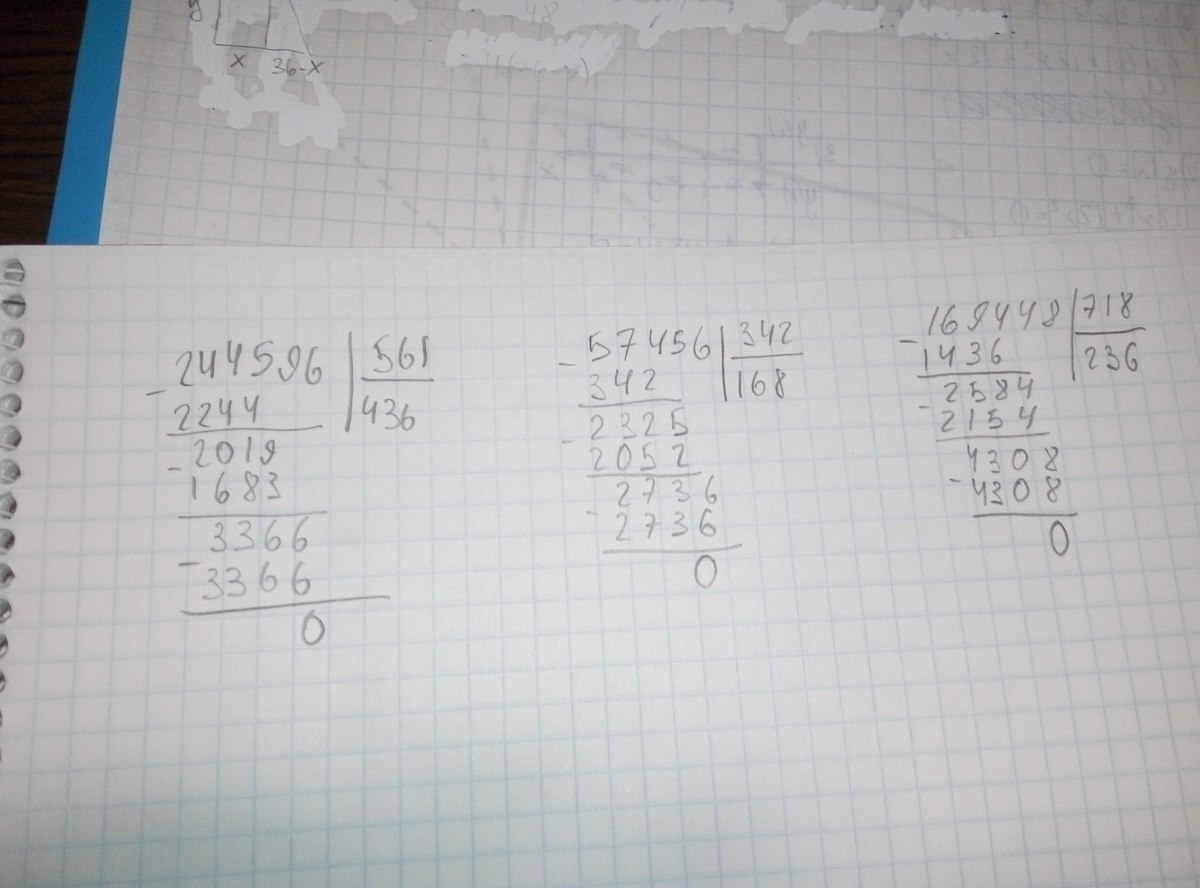 x 36-x
244596 | 561
- 2244 | 436
2019
- 1683
3366
- 3366
0
57456 | 342
- 342 | 168
2325
- 2052
2736
- 2736
0
169448 | 718
- 1436 | 236
2584
- 2154
4308
- 4308
0